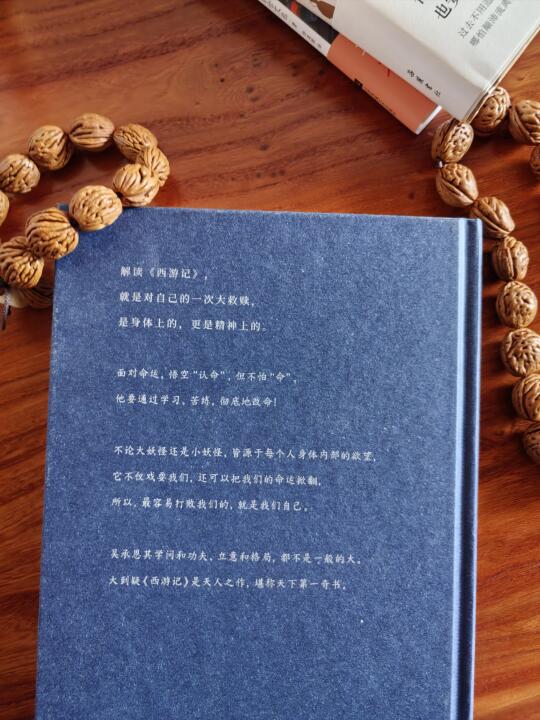 解读《西游记》，
就是对自己的一次大救赎，
是身体上的，更是精神上的。
面对命运，悟空“认命”，但不怕“命”，
他要通过学习、苦练，彻底地改命！
不论大妖怪还是小妖怪，皆源于每个人身体内部的欲望，
它不仅戏耍我们，还可以把我们的命运掀翻，
所以，最容易打败我们的，就是我们自己。
吴承恩其学问和功夫，立意和格局，都不是一般的大。
大到疑《西游记》是天人之作，堪称天下第一奇书。
过去不用
哪怕颠沛流离
岳麓书社